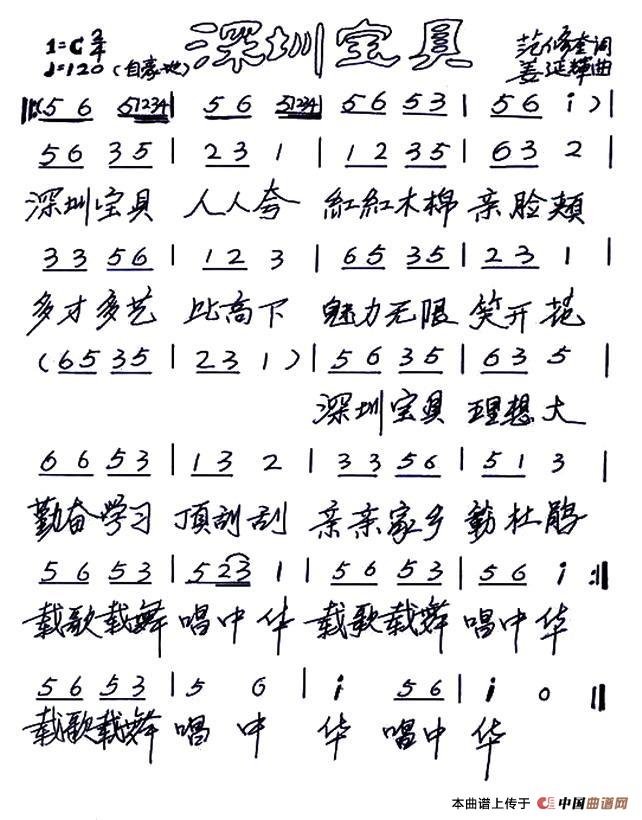 深圳宝貝
1=C 2/4
♩=120（自豪地）
范修奎词
姜延辉曲
‖: (5 6 51234 | 5 6 51234 | 5 6 5 3 | 5 6 i ) |
5 6 3 5 | 2 3 1 | 1 2 3 5 | 6 3 2 |
深圳宝貝 人人夸 紅紅木棉 亲脸頰
3 3 5 6 | 1 2 3 | 6 5 3 5 | 2 3 1 |
多才多艺 比高下 魅力无限 笑开花
( 6 5 3 5 | 2 3 1 ) | 5 6 3 5 | 6 3 5 |
深圳宝貝 理想大
6 6 5 3 | 1 3 2 | 3 3 5 6 | 5 1 3 |
勤奋学习 頂刮刮 亲亲家乡 杜鹃
5 6 5 3 | 5 2 3 1 | 5 6 5 3 | 5 6 i :‖
载歌载舞 唱中华 载歌载舞 唱中华
5 6 5 3 | 5 6 | i 5 6 | i 0 ‖
载歌载舞 唱中 华 唱中 华
本曲谱上传于 中国曲谱网